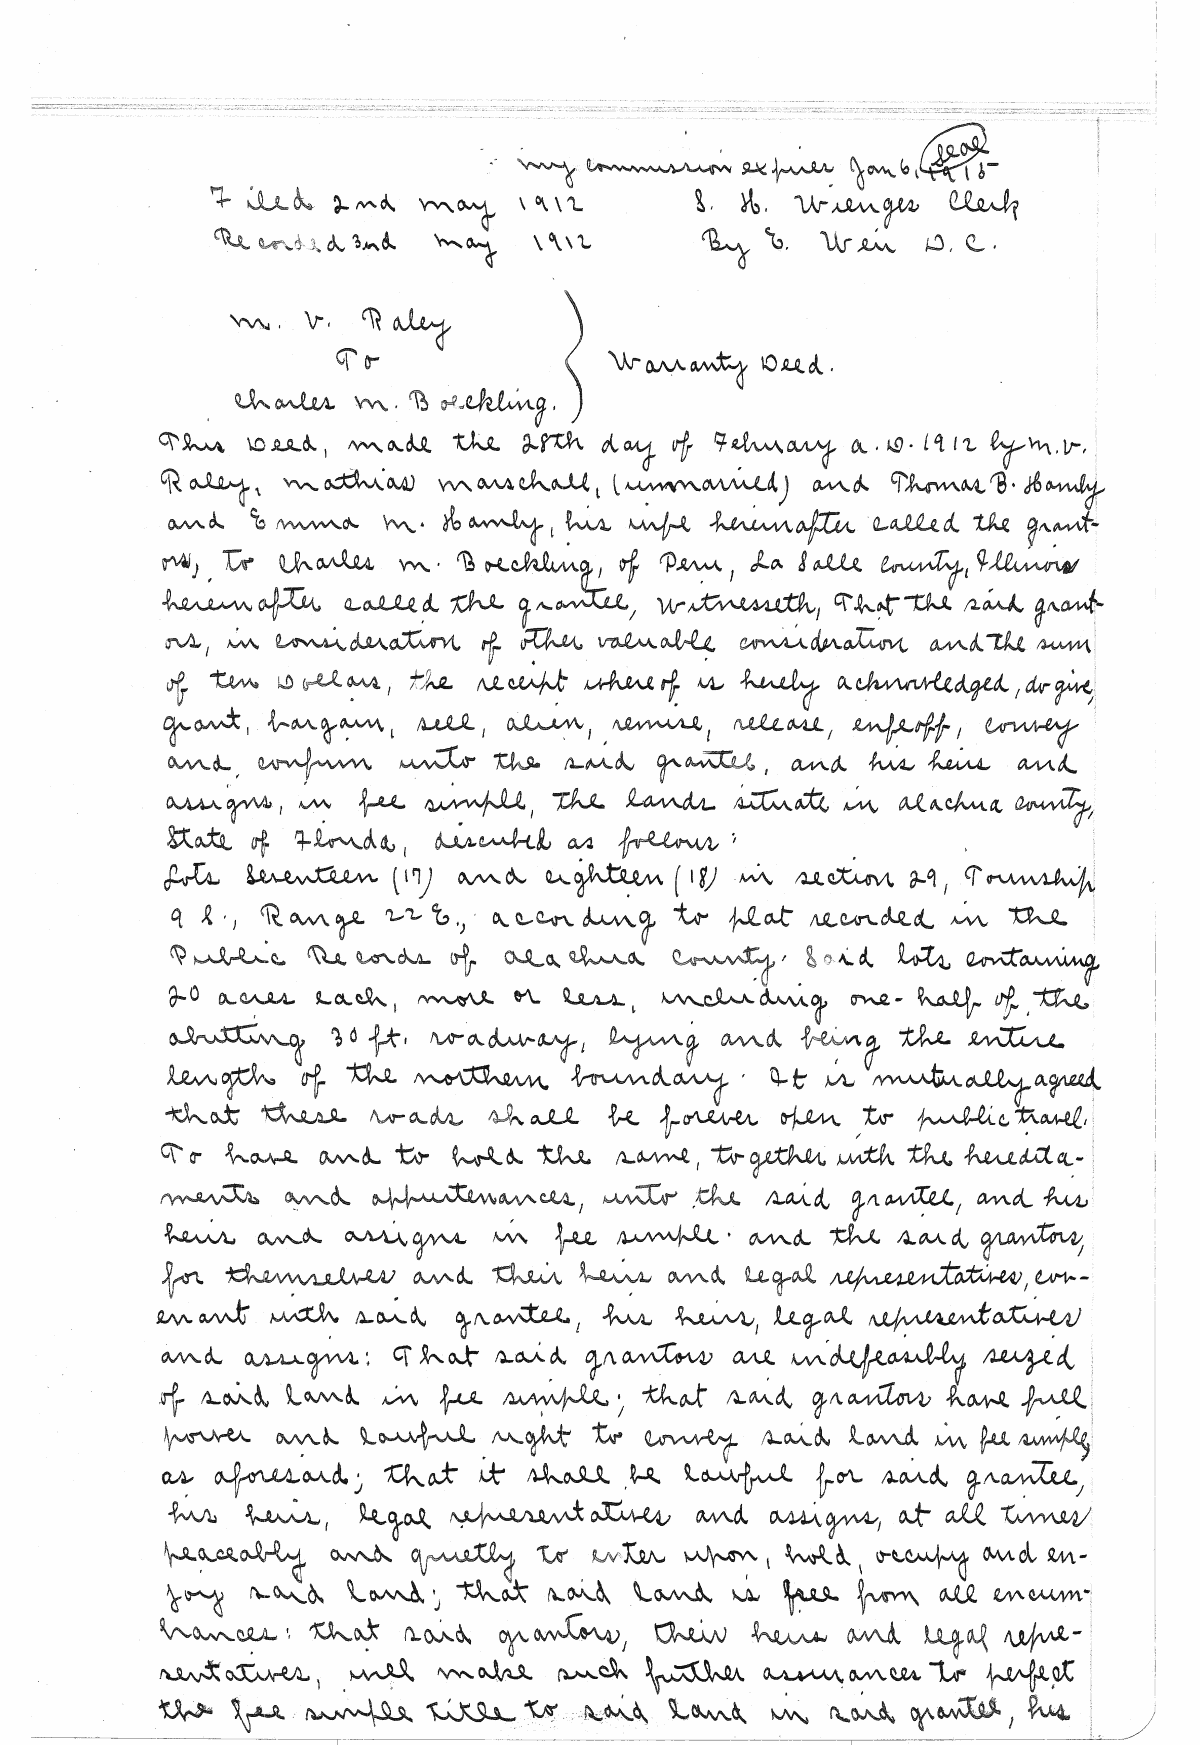 my commission expires Jan 6, 1915 seal
Filed 2nd May 1912 S. H. Wienges Clerk
Recorded 3nd May 1912 By E. Weir D. C.
M. V. Raley
To
Charles M. Boeckling.
Warranty Deed.
This Deed, made the 28th day of February A. D. 1912 by M. V.
Raley, Mathias Marschall, (unmarried) and Thomas B. Hamly
and Emma M. Hamly, his wife hereinafter called the grant-
ors, to Charles M. Boeckling, of Peru, La Salle County, Illinois
hereinafter called the grantee, Witnesseth, That the said grant-
ors, in consideration of other valuable consideration and the sum
of ten Dollars, the receipt whereof is hereby acknowledged, do give,
grant, bargain, sell, alien, remise, release, enfeoff, convey
and confirm unto the said grantee, and his heirs and
assigns, in fee simple, the lands situate in Alachua County,
State of Florida, described as follows:
Lots Seventeen (17) and eighteen (18) in section 29, Township
9 S., Range 22 E., according to plat recorded in the
Public Records of Alachua County. Said lots containing
20 acres each, more or less, including one-half of the
abutting 30 ft. roadway, lying and being the entire
length of the northern boundary. It is mutually agreed
that these roads shall be forever open to public travel.
To have and to hold the same, together with the heredita-
ments and appurtenances, unto the said grantee, and his
heirs and assigns in fee simple. And the said grantors,
for themselves and their heirs and legal representatives, cov-
enant with said grantee, his heirs, legal representatives
and assigns: That said grantors are indefeasibly seized
of said land in fee simple; that said grantors have full
power and lawful right to convey said land in fee simple,
as aforesaid; that it shall be lawful for said grantee,
his heirs, legal representatives and assigns, at all times
peaceably and quietly to enter upon, hold, occupy and en-
joy said land; that said land is free from all encum-
brances: that said grantors, their heirs and legal repre-
sentatives, will make such further assurances to perfect
the fee simple title to said land in said grantee, his